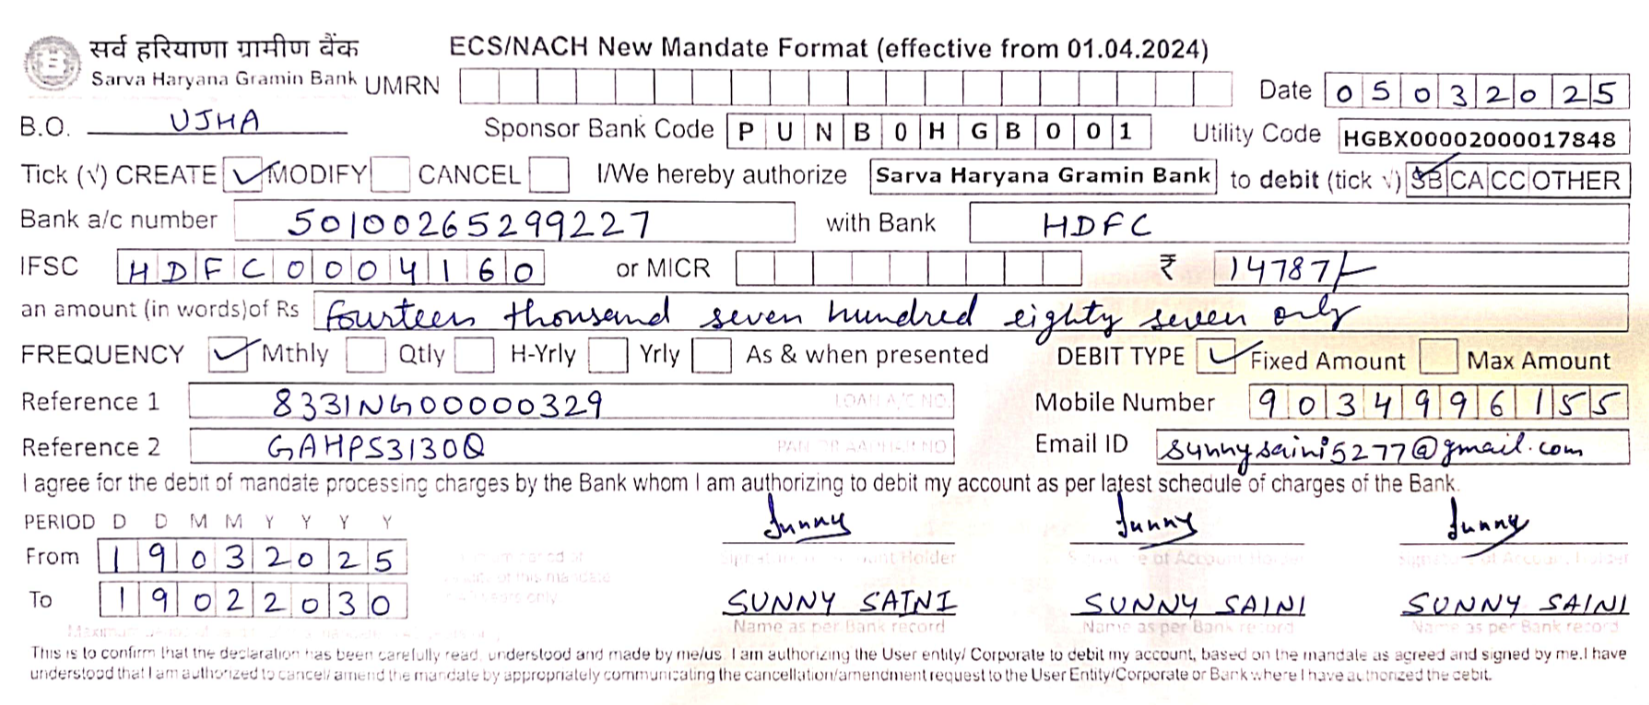 सर्व हरियाणा ग्रामीण बैंक ECS/NACH New Mandate Format (effective from 01.04.2024)
Sarva Haryana Gramin Bank UMRN Date 05032025
B.O. UJHA Sponsor Bank Code PUNB0HGB001 Utility Code HGBX00002000017848
Tick (√) CREATE ✓ MODIFY CANCEL I/We hereby authorize Sarva Haryana Gramin Bank to debit (tick √) SB CA CC OTHER
Bank a/c number 50100265299227 with Bank HDFC
IFSC HDFC0004160 or MICR ₹ 14787/-
an amount (in words)of Rs fourteen thousand seven hundred eighty seven only
FREQUENCY ✓ Mthly Qtly H-Yrly Yrly As & when presented DEBIT TYPE ✓ Fixed Amount Max Amount
Reference 1 8331NG00000329 LOAN A/C NO. Mobile Number 9034996155
Reference 2 GAHPS3130Q PAN OR AADHAR NO Email ID sunnysaini5277@gmail.com
I agree for the debit of mandate processing charges by the Bank whom I am authorizing to debit my account as per latest schedule of charges of the Bank.
PERIOD D D M M Y Y Y Y Sunny Sunny Sunny
From 19032025
To 19022030 SUNNY SAINI SUNNY SAINI SUNNY SAINI
Name as per Bank record Name as per Bank record Name as per Bank record
This is to confirm that the declaration has been carefully read, understood and made by me/us. I am authorizing the User entity/ Corporate to debit my account, based on the mandate as agreed and signed by me.I have
understood that I am authorized to cancel/ amend the mandate by appropriately communicating the cancellation/amendment request to the User Entity/Corporate or Bank where I have authorized the debit.